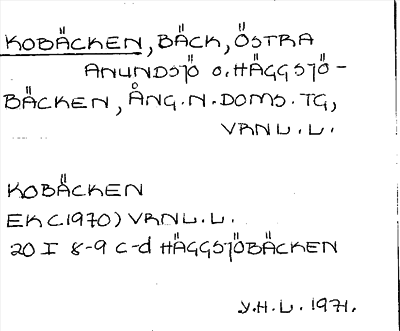 KOBÄCKEN, BÄCK, ÖSTRA
ANUNDSJÖ O. HÄGGSJÖ-
BÄCKEN, ÅNG.N.DOMS.TG,
VRNL.L.
KOBÄCKEN
EK (1970) VRNL.L.
20 I 8-9 c-d HÄGGSJÖBÄCKEN
Y.H.L. 1971.